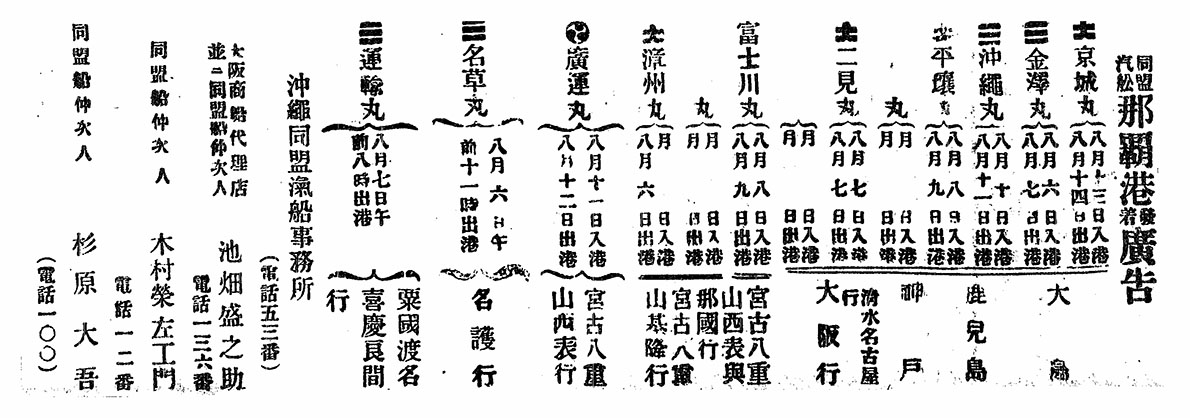 同盟汽舩
那覇港發着廣告
京城丸 八月十三日入港 八月十四日出港
金澤丸 八月六日入港 八月七日出港
沖繩丸 八月十日入港 八月十一日出港
平壤丸 八月八日入港 八月九日出港
丸 月 日入港 日出港
二見丸 八月七日入港 八月七日出港
月 日入港 日出港
大島
鹿兒島
神戶
淸水名古屋行
大阪行
富士川丸 八月八日入港 八月九日出港
宮古八重山西表與那國行
丸 月 日入港 日出港
漳州丸 月 日入港 八月六日出港
宮古八重山基隆行
廣運丸 八月十一日入港 八月十二日出港
宮古八重山西表行
名草丸 八月六日午前十一時出港
名護行
運輸丸 八月七日午前八時出港
粟國渡名喜慶良間行
沖繩同盟滊船事務所
(電話五三番)
大阪商船代理店
並ニ同盟船仲次人
池畑盛之助
電話一三六番
同盟船仲次人
木村榮左工門
電話一二番
同盟船仲次人
杉原大吾
(電話一〇〇)